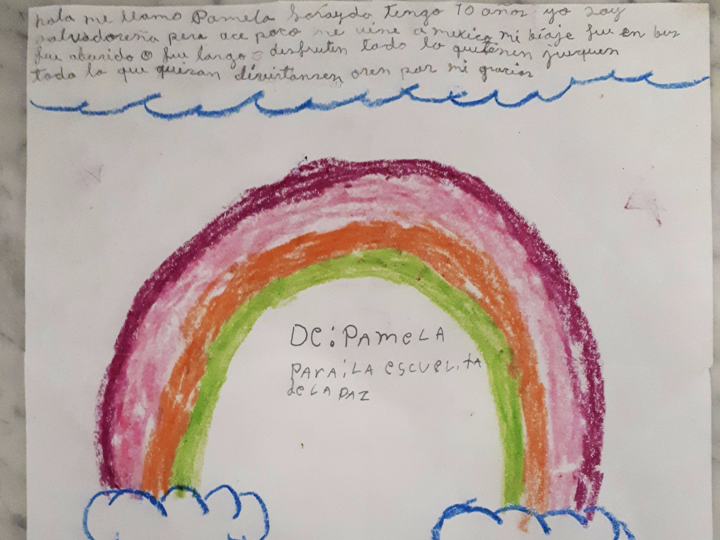 hola me llamo Pamela Sorayda, tengo 10 años yo soy
salvadoreña pera ace poco me vine a mexico mi biaje fue en bus
fue aburido o fue largo disfruten todo lo quetenen juequen
todo lo que quieran diviertansen, oren por mi gracias
DE: PAMELA
PARA: LA ESCUELITA
de LA PAZ